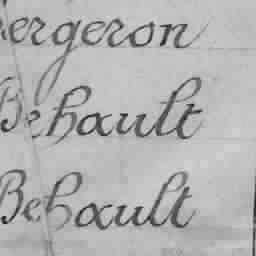 Bergeron
Behault
Behault